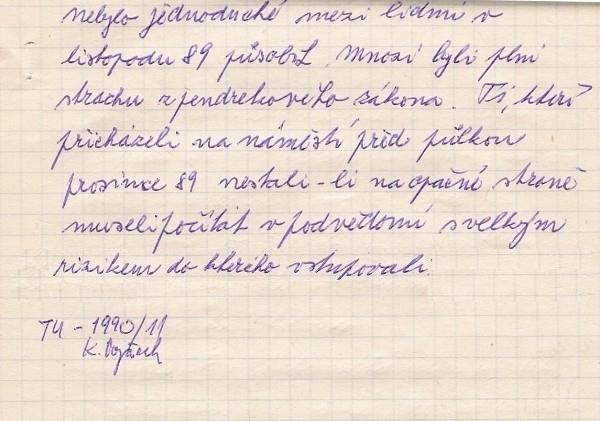 nebylo jednoduché mezi lidmi v
listopadu 89 působit. Mnozí byli plni
strachu z pendrekového zákona. Ti, kteří
přicházeli na náměstí před půlkou
prosince 89 nestáli-li na opačné straně
museli počítat v podvědomí s velkým
rizikem do kterého vstupovali.
TU - 1990/11
K. Vojtěch